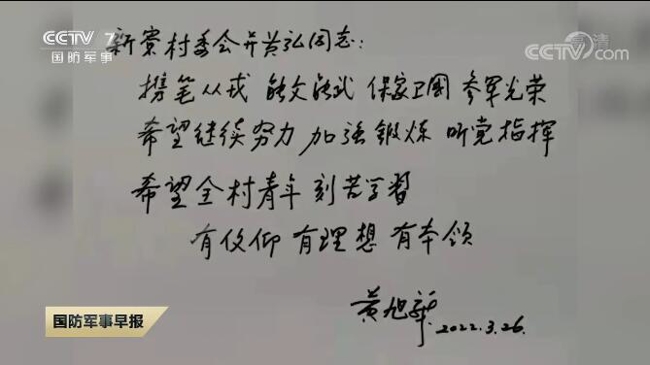 CCTV 7
国防军事
高清
CCTV.com
新寮村委会并黄弘同志：
携笔从戎 能文能武 保家卫国 参军光荣
希望继续努力 加强锻炼 听党指挥
希望全村青年刻苦学习
有信仰 有理想 有本领
黄旭华
2022.3.26.
国防军事早报